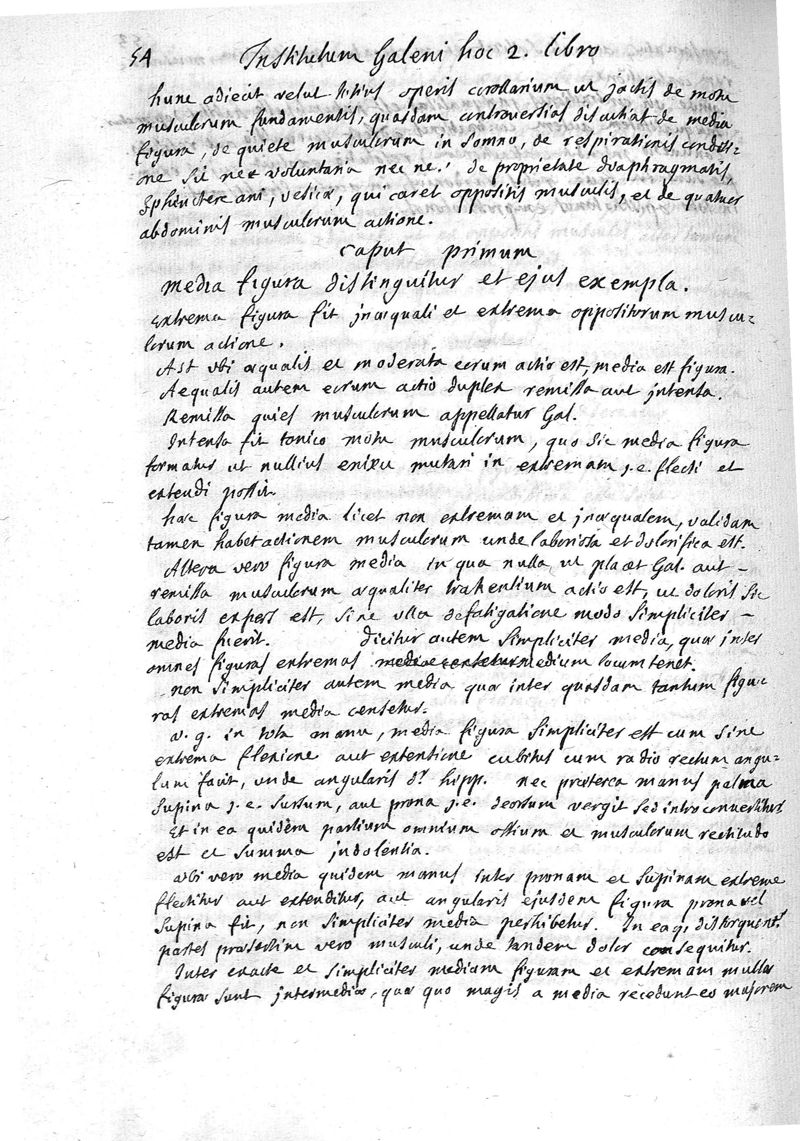 54 Institutum Galeni hoc 2. libro
hunc adiecit velut totius operis corollarium ut jactis de motu
musculorum fundamentis, quasdam controversias discutiat de media
figura, de quiete musculorum in somno, de respirationis conditi=
one sit nec voluntaria nec ne. de proprietate diaphragmatis,
Sphinctere ani, vesicæ, qui caret oppositis musculis, et de quatuor
abdominis musculorum actione.
caput primum
media figura distinguitur et ejus exempla.
extrema figura fit inæquali et extrema oppositorum muscu=
lorum actione.
Ast ubi æqualis et moderata eorum actio est, media est figura.
Aequalis autem eorum actio duplex remissa aut intensa.
Remissa quies musculorum appellatur Gal.
Intensa fit tonico motu musculorum, quo sic media figura
formatur ut nullius enixu mutari in extremam j.e. flecti et
extendi possit.
hæc figura media licet non extremam et inæqualem, validam
tamen habet actionem musculorum unde laboriosa et dolorifica est.
Altera vero figura media in qua nulla ut placet Gal. aut –
remissa musculorum æqualiter trahentium actio est, ut doloris sic
laboris expers est, sine ulla defatigatione modo simpliciter –
media fuerit. dicitur autem simpliciter media, quæ inter
omnes figuras extremas medium locum tenet.
non simpliciter autem media quæ inter quasdam tantum figu=
ras extremas media censetur.
v. g. in tota manu, media figura simpliciter est cum sine
extrema flexione aut extentione cubitus cum radio rectum angu=
lum facit, unde angularis dr. hipp. nec præterea manus palma
supina j.e. sursum, aut prona j.e. deorsum vergit sed intro convertitur
Et in ea quidem partium omnium ossium et musculorum rectitudo
est et summa indolentia.
ubi vero media quidem manus inter pronam et supinam extreme
flectitur aut extenditur, aut angularis ejusdem figura prona vel
supina fit, non simpliciter media perhibetur. In eaq; distorquentr
partes præsertim vero musculi, unde tandem dolor consequitur.
Inter exacte et simpliciter mediam figuram et extremam multæ
figuræ sunt intermediæ, quæ quo magis a media recedunt eo majorem